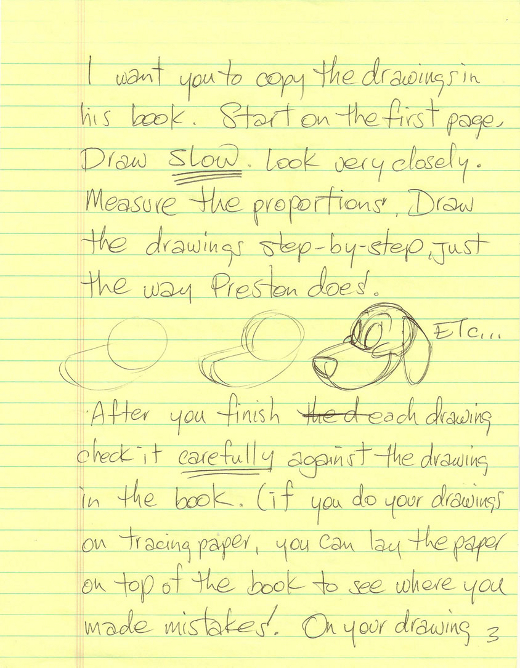 I want you to copy the drawings in
his book. Start on the first page.
Draw slow. Look very closely.
Measure the proportions. Draw
the drawings step-by-step, just
the way Preston does.
ETC...
After you finish the d each drawing
check it carefully against the drawing
in the book. (if you do your drawings
on tracing paper, you can lay the paper
on top of the book to see where you
made mistakes. On your drawing 3